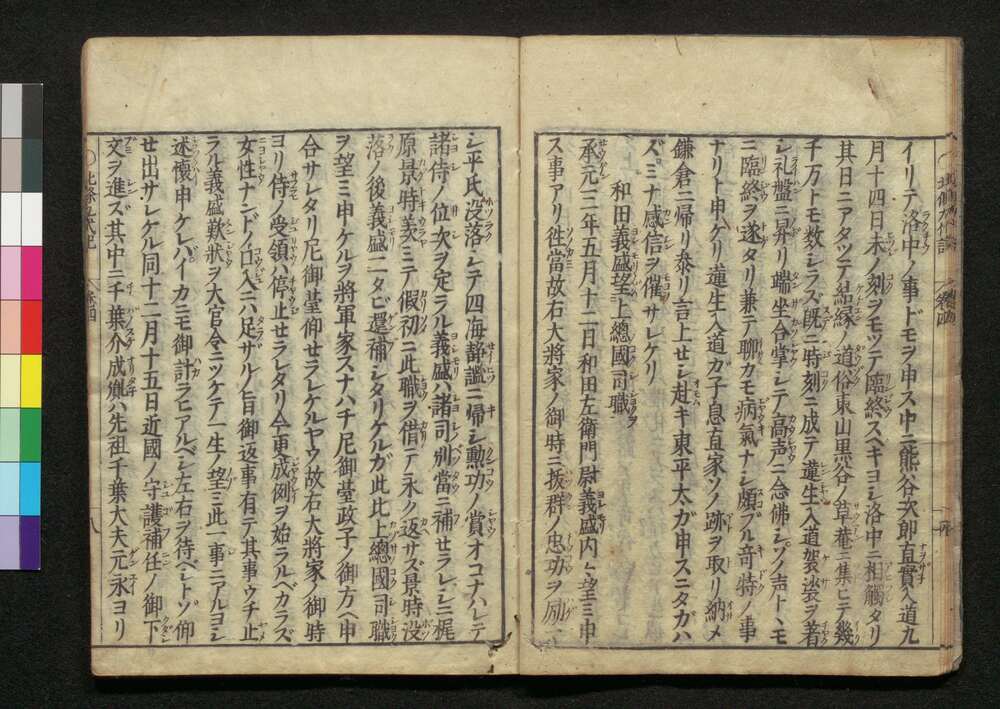 イリテ洛中ノ事ドモヲ申ス中ニ熊谷次郎直實入道九
月十四日未ノ刻ヲモツテ臨終スヘキヨシ洛中ニ相觸タリ
其日ニアタツテ結縁ノ道俗東山黒谷ノ草菴ニ集ヒテ幾
千万トモ数シラズ既ニ時刻ニ成テ蓮生入道袈裟ヲ著
シ礼盤ニ昇リ端坐合掌シテ高声ニ念佛シソノ声トトモ
ニ臨終ヲ遂タリ兼テ聊カモ病氣ナシ頗ブル奇特ノ事
ナリト申ケリ蓮生入道ガ子息直家ソノ跡ヲ取リ納メ
鎌倉ニ帰リ泰リ言上せシ赴キ東平太ガ申スニタガハ
ズミナ感信ヲ催サレケリ
和田義盛望上總國司職
承元三年五月十二日和田左衛門尉義盛内々望ミ申
ス事アリ徃當故右大將家ノ御時ニ抜群ノ忠功ヲ励
シ平氏没落シテ四海静謐ニ帰シ勲功ノ賞オコナハレテ
諸侍ノ位次ヲ定ラル義盛ハ諸司別當ニ補せラレシニ梶
原景時羨ミテ假初ニ此職ヲ借テ永ク返サズ景時没
落ノ後義盛二タビ還補シタリケルガ此比上總國司職
ヲ望ミ申ケルヲ將軍家スナハチ尼御臺政子ノ御方ヘ申
合サレタリ尼御臺仰せラレケルヤウ故右大將家ノ御時
ヨリ侍ノ受領ハ停止せラレタリ今更成例ヲ始ラルベカラズ
女性ナンドノ口入ニハ足サルノ旨御返事有テ其事ウチ止
ラル義盛歎状ヲ大官令ニツケテ一生ノ望ミ此一事ニアルヨシ
述懷申ケレバイカニモ御計ラヒアルベシ左右ヲ待ベシトゾ仰
せ出サレケル同十二月十五日近國ノ守護補任ノ御下
文ヲ進ズ其中ニ千葉介成胤ハ先祖千葉大夫元永ヨリ
北條九代記
巻四
八